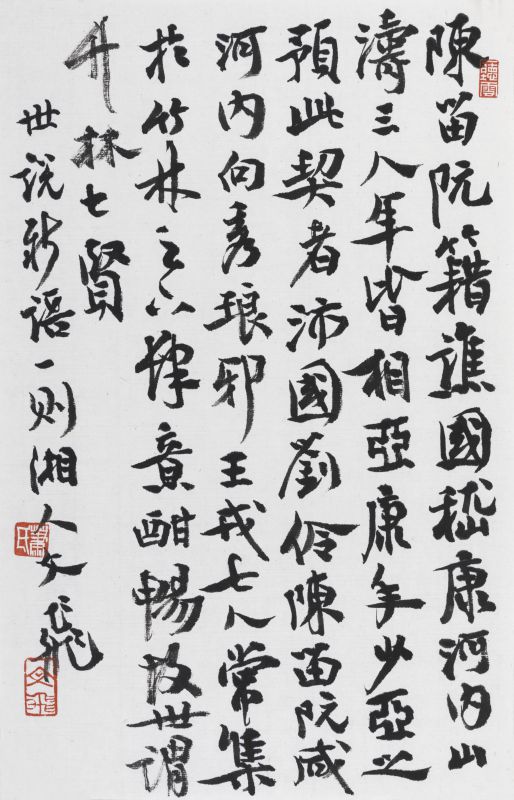 陳留阮籍譙國嵇康河内山
濤三人年皆相亞康年少亞之
預此契者沛國劉伶陳留阮咸
河内向秀琅邪王戎七人常集
於竹林之下肆意酣暢故世謂
竹林七賢
世说新语一则湘人文飛
蕭氏
文飛